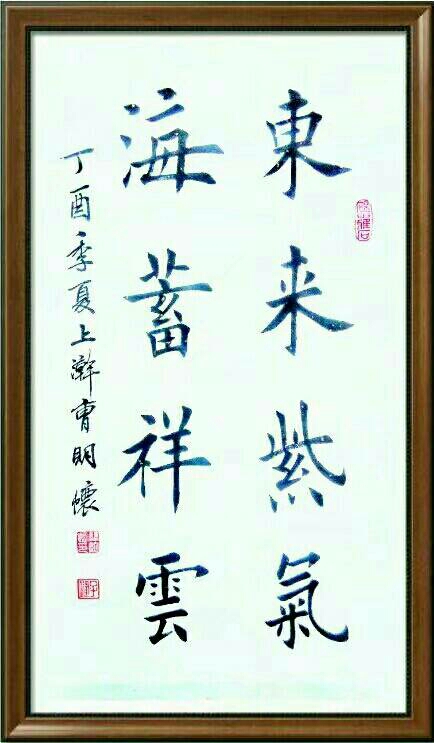 東来紫氣
海蓄祥雲
丁酉季夏上澣曹明懷